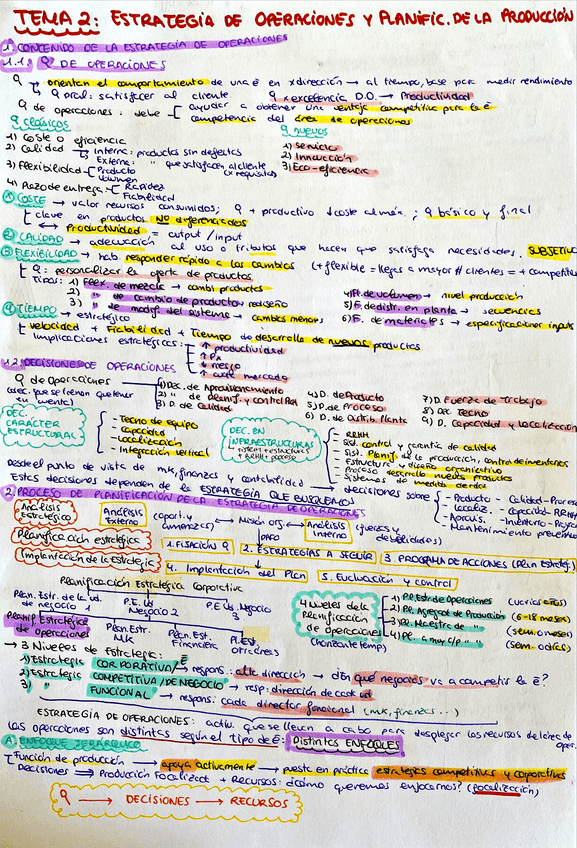 TEMA 2: ESTRATEGIA DE OPERACIONES Y PLANIFIC. DE LA PRODUCCIÓN
1. CONTENIDO DE LA ESTRATEGIA DE OPERACIONES
1.1. DE OPERACIONES
orientan el comportamiento de una é en x dirección → al tiempo, base para medir rendimiento
pral: satisfacer al cliente x excelencia D.O. → Productividad
de operaciones: debe ayudar a obtener una ventaja competitiva para la é
competencia del área de operaciones
CLÁSICOS NUEVOS
1) Coste o eficiencia 1) Servicio
2) Calidad → Interna: productos sin defectos 2) Innovación
Externa: " que satisfagan al cliente 3) Eco-eficiencia
3) Flexibilidad Producto (x requisitos)
Volumen
4) Plazo de entrega Rapidez
Fiabilidad
1 COSTE → valor recursos consumidos; + productivo ↓coste al máx.; básico y final
clave en productos NO diferenciados
↔ Productividad = output / input
2 CALIDAD → adecuación al uso o tributos que hacen que satisfaga necesidades. SUBJETIVO
3 FLEXIBILIDAD → hab responder rápido a los cambios (+ flexible = llegas a mayor # clientes = + competitivo
: personalizar la oferta de productos
Tipos: 1) Flex. de mezcla → combi productos 4) Fl. de volumen → nivel producción
2) " de cambio de producto → rediseño 5) F. de distr. en planta → secuencias
3) " de modif. del sistema → cambios menores 6) F. de materiales → especificaciones inputs
4 TIEMPO → estratégico
velocidad + Fiabilidad + Tiempo de desarrollo de nuevos productos
Implicaciones estratégicas: ↑ productividad
↑ Px
↓ riesgo
↑ cuota mercado
1.2. DECISIONES DE OPERACIONES
de Operaciones 1) Dec. de Aprovisionamiento 4) D. de Producto 7) D. Fuerza de Trabajo
(dec. que se tienen que tener en cuenta) 2) " de planif. y control Pon 5) D. de Proceso 8) Dec. Tecno
3) D. de Calidad 6) D. de Distrib. Planta 9) D. Capacidad y Localización
DEC. CARÁCTER ESTRUCTURAL
- Tecno de equipo
- Capacidad
- Localización
- Integración vertical
DEC. EN INFRAESTRUCTURAS
sistem + estructuras + RRHH + proceso
- RRHH
- Sist. control y garantía de calidad
- Sist. Planif. de la producción, control de inventarios
- Estructura y diseño organizativo
- Proceso desarrollo nuevos productos
- Sistemas de medida y
Desde el punto de vista de mk, finanzas y contabilidad → decisiones sobre - Producto - Calidad - Proceso
Estas decisiones dependen de la ESTRATEGIA QUE BUSQUEMOS - Localiz. - Capacidad - RRHH
- Aprovis. - Inventario - Proyec
- Mantenimiento preventivo
2. PROCESO DE PLANIFICACIÓN DE LA ESTRATEGIA DE OPERACIONES
Análisis Estratégico Análisis Externo (oport. y amenazas) ↔ Misión org ↔ Análisis Interno (fuerzas y debilidades)
Planificación estratégica
1. FIJACIÓN 2. ESTRATEGIAS A SEGUIR 3. PROGRAMA DE ACCIONES (Plan Estratég.)
Implantación de la Estrategia
4. Implantación del Plan 5. Evaluación y control
Planificación Estratégica Corporativa
Plan. Estr. de la ud. de negocio 1 P.E. ud. Negocio 2 P.E. ud. Negocio 3
Planif Estratégica de operaciones Plan. Estr. MK Plan. Est. Financiera Pl. Est. otras áreas
4 niveles de la Planificación de Operaciones (horizonte temp)
1) Pl. Estr de Operaciones (varios años)
2) Pl. Agregada de Producción (6-18 meses)
3) Pl. Maestra de (sem o meses)
4) Pl. a muy c/p (sem o días)
→ 3 Niveles de Estrategia:
1) Estrategia CORPORATIVA/É → respons: alta dirección → ¿En qué negocios va a competir la é?
2) Estrategia COMPETITIVA/DE NEGOCIO → resp: dirección de cada ud
3) " FUNCIONAL → respons: cada director funcional (mk, finanzas...)
ESTRATEGIA DE OPERACIONES: activ. que se llevan a cabo para desplegar los recursos del área de oper.
Las operaciones son distintas según el tipo de é: Distintos ENFOQUES
A. ENFOQUE JERÁRQUICO
Función de producción → apoya activamente → puesta en práctica estrategias competitivas y corporativas
Decisiones ⇒ Producción Focalizada + Recursos: ¿cómo queremos enfocarnos? (focalización)
→ DECISIONES → RECURSOS